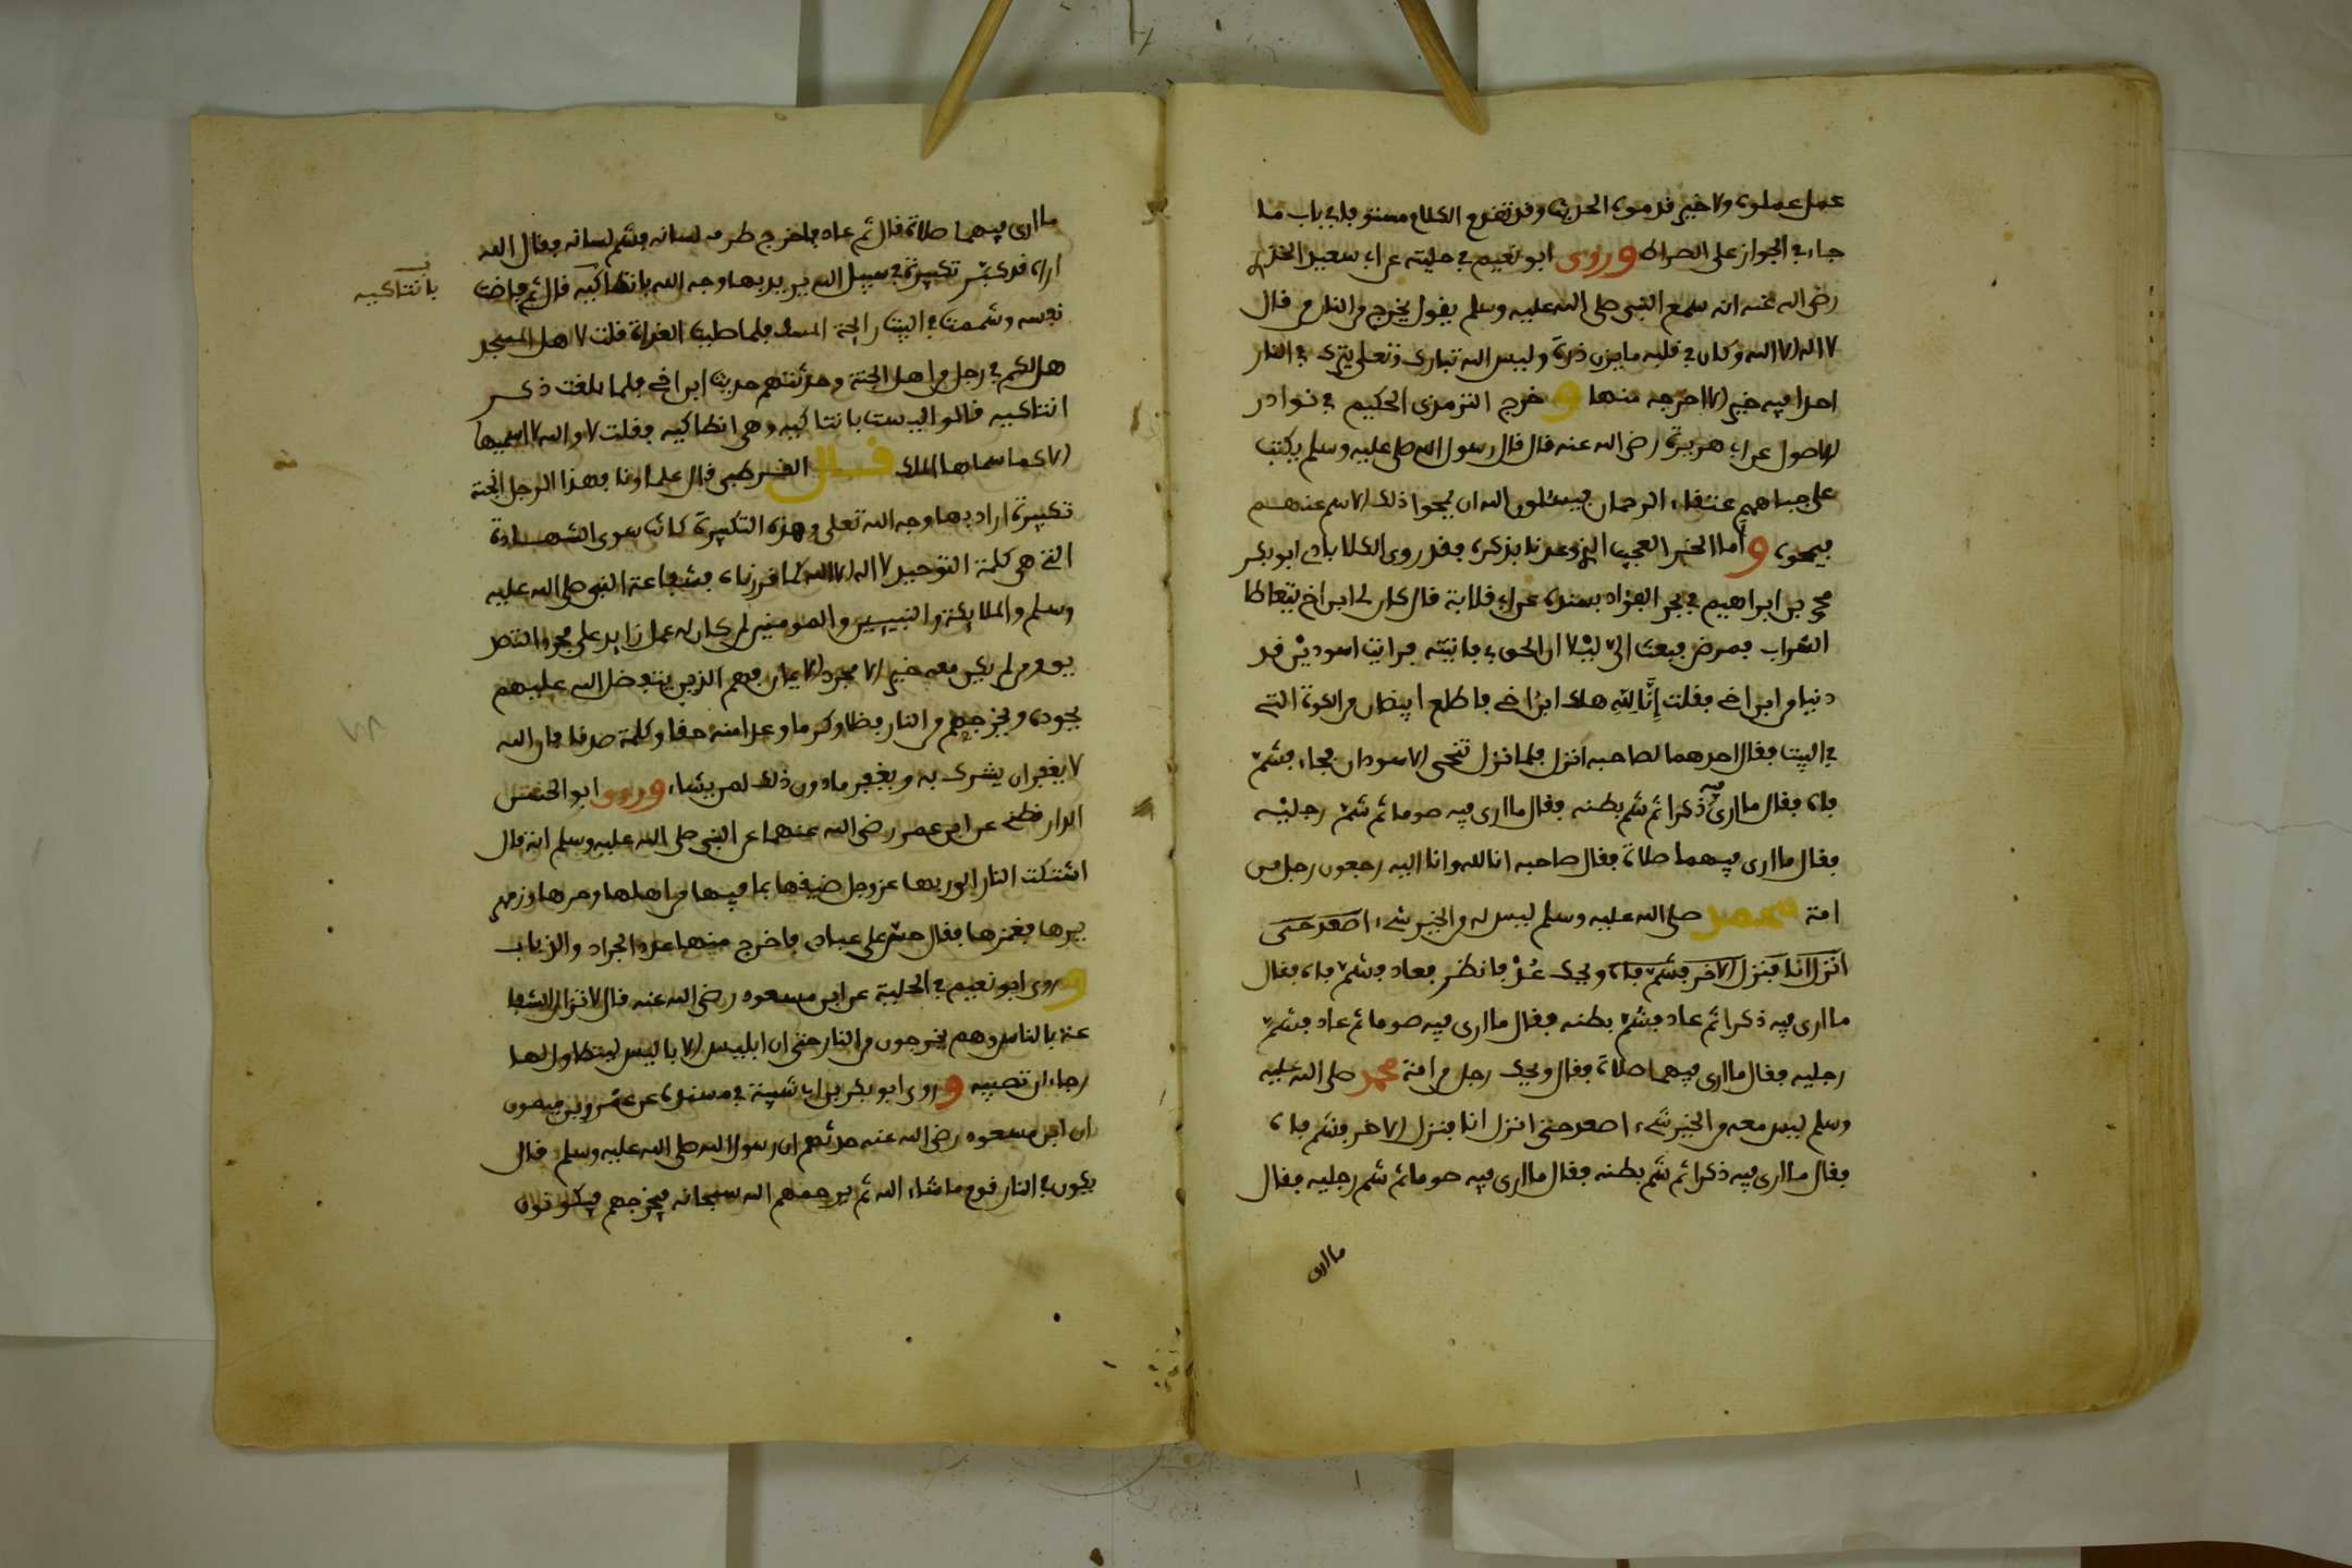 عمل عملوه ولا خير قدموه الحديث وقد تقدم الكلام مستوفا في باب ما
جاء في الجواز على الصراط وروى ابو نعيم في حليته عن ابي سعيد الخدري
رضي الله عنه انه سمع النبي صلى الله عليه وسلم يقول يخرج من النار من قال
لا اله الا الله وكان في قلبه ما يزن ذرة وليس الله تبارك وتعلى يترك في النار
احدا فيه خير الا اخرجه منها وخرج الترمذي الحكيم في نوادر
الاصول عن ابي هريرة رضي الله عنه قال قال رسول الله صلى عليه وسلم يكتب
على جباههم عتقاء الرحمان فيسئلون الله ان يمحوا ذلك الاسم عنهم
فيمحوه وأما الخبر العجيب الذي وعدنا بذكره فقد روى الكلاباذي ابو بكر
محمد بن ابراهيم في بحر الفوائد بسنده عن ابي قلابة قال كان لي ابن اخ يتعاطا
الشراب فمرض فبعث الي ليلا ان الحق بي فاتيته فرايت اسودين قد
دنيا من ابن اخي فقلت إنا لله هلك ابن اخي فاطلع ابيضان من الكوة التي
في البيت فقال احدهما لصاحبه انزل فلما نزل تنحى الاسودان فجاء فشم
فاه فقال ما ارى فيه ذكرا ثم شم بطنه فقال ما ارى فيه صوما ثم شم رجليه
فقال ما ارى فيهما صلاة فقال صاحبه انا لله وانا اليه رجعون رجل من
امة محمد صلى الله عليه وسلم ليس له من الخير شيء اصعد حتى
انزل انا فنزل الاخر فشم فاه ويحك عُدْ فانظر فعاد فشم فاه فقال
ما ارى فيه ذكرا ثم عاد فشم بطنه فقال ما ارى فيه صوما ثم عاد فشم
رجليه فقال ما ارى فيهما صلاة فقال ويحك رجل من امة محمد صلى الله عليه
وسلم ليس معه من الخير شيء اصعد حتى انزل انا فنزل الاخر فشم فاه
فقال ما ارى فيه ذكرا ثم شم بطنه فقال ما ارى فيه صوما ثم شم رجليه فقال
ما ارى
ما ارى فيهما صلاة قال ثم عاد فاخرج طرف لسانه فشم لسانه فقال الله
اراه قد كبر تكبيرة في سبيل الله يريد بها وجه الله بانطاكيه قال ثم فاضت
بانتاكيه
نفسه وشممت في البيت رايحة المسك فلما صليت الغداة قلت لاهل المسجد
هل لكم في رجل من اهل الجنة وحدثتهم حديث ابن اخي فلما بلغت ذكر
انتاكيه قالوا ليست بانتاكيه وهي انطاكيه فقلت لا والله لا اسميها
الا كما سماها الملك قال القرطبي قال علماونا فهذا الرجل انجته
تكبيرة اراد بها وجه الله تعلى وهذه التكبيرة كانت سوى الشهادة
التي هي كلمة التوحيد لا اله الا الله كما قررناه فشفاعة النبي صلى الله عليه
وسلم والملايكة والنبيين والمومنين لمن كان له عمل زايد على مجرد التصد
يق ومن لم يكن معه خير الا مجرد الايمان فهم الذين يتفضل الله عليهم
بجوده ويخرجهم من النار فضلا وكرما وعدا منه حقا وكلمة صدقا فان الله
لا يغفر ان يشرك به ويغفر مادون ذلك لمن يشاء وروى ابو الحسن
الدارقطني عن ابن عمر رضي الله عنهما عن النبي صلى الله عليه وسلم انه قال
اشتكت النار الى ربها عز وجل ضيقها بما فيها من اهلها وحرها وزمهر
يرها فغمزها فقال حسبي علي عبادي فاخرج منها عدد الجراد والذباب
وروى ابو نعيم في الحلية عن ابن مسعود رضي الله عنه قال لا تزال الشفا
عة بالناس وهم يخرجون من النار حتى ان ابليس الاباليس ليتطاول لها
رجاء ان تصيبه وروى ابو بكر بن ابي شيبة في مسنده عن عمرو بن ميمون
ان ابن مسعود رضي الله عنه حدثهم ان رسول الله صلى الله عليه وسلم قال
يكون في النار قوم ما شاء الله ثم يرحمهم الله سبحانه فيخرجهم فيكونون